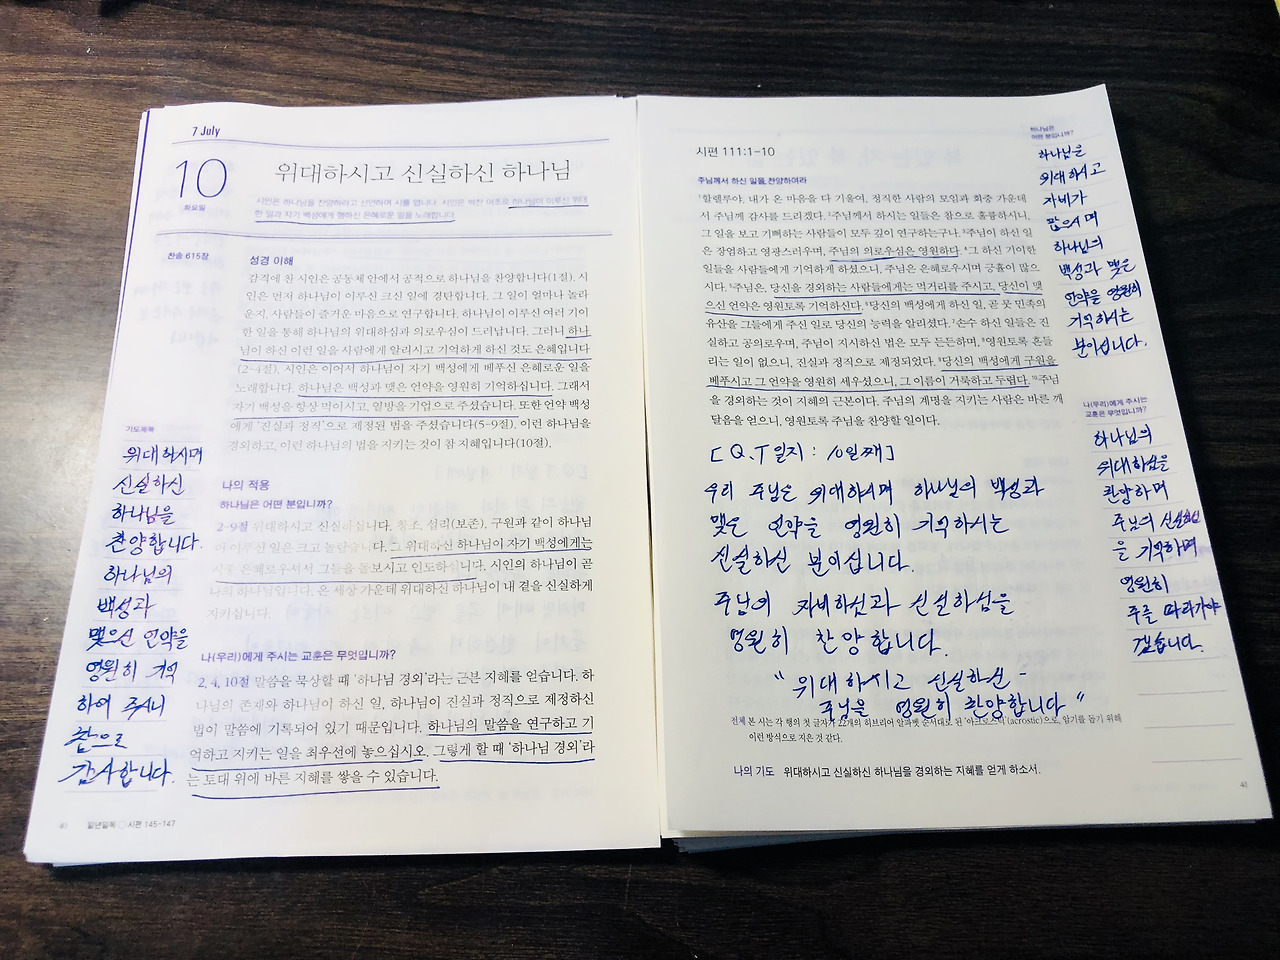 7 July
10
화요일
위대하시고 신실하신 하나님
시인은 하나님을 찬양하라고 선언하며 시를 엽니다. 시인은 벅찬 어조로 하나님이 이루신 위대
한 일과 자기 백성에게 행하신 은혜로운 일을 노래합니다.
찬송 615장
성경 이해
감격에 찬 시인은 공동체 안에서 공적으로 하나님을 찬양합니다(1절). 시
인은 먼저 하나님이 이루신 크신 일에 경탄합니다. 그 일이 얼마나 놀라
운지, 사람들이 즐거운 마음으로 연구합니다. 하나님이 이루신 여러 기이
한 일을 통해 하나님의 위대하심과 의로우심이 드러납니다. 그러니 하나
님이 하신 이런 일을 사람에게 알리시고 기억하게 하신 것도 은혜입니다
(2-4절). 시인은 이어서 하나님이 자기 백성에게 베푸신 은혜로운 일을
노래합니다. 하나님은 백성과 맺은 언약을 영원히 기억하십니다. 그래서
자기 백성을 항상 먹이시고, 열방을 기업으로 주셨습니다. 또한 언약 백성
에게 '진실과 정직'으로 제정된 법을 주셨습니다(5-9절). 이런 하나님을
경외하고, 이런 하나님의 법을 지키는 것이 참 지혜입니다(10절).
기도제목
위대하시며
신실하신
하나님을
찬양합니다.
하나님의
백성과
맺으신 언약을
영원히 기억
하여 주시니
참으로
감사합니다.
나의 적용
하나님은 어떤 분입니까?
2-9절 위대하시고 신실하십니다. 창조, 섭리(보존), 구원과 같이 하나님
이 이루신 일은 크고 놀랍습니다. 그 위대하신 하나님이 자기 백성에게는
은혜로우셔서 그들을 돌보시고 인도하십니다. 시인의 하나님이 곧
나의 하나님입니다. 온 세상 가운데 위대하신 하나님이 내 곁을 신실하게
지키십니다.
나(우리)에게 주시는 교훈은 무엇입니까?
2, 4, 10절 말씀을 묵상할 때 '하나님 경외'라는 근본 지혜를 얻습니다. 하
나님의 존재와 하나님이 하신 일, 하나님이 진실과 정직으로 제정하신
법이 말씀에 기록되어 있기 때문입니다. 하나님의 말씀을 연구하고 기
억하고 지키는 일을 최우선에 놓으십시오. 그렇게 할 때 '하나님 경외'라
는 토대 위에 바른 지혜를 쌓을 수 있습니다.
일년일독 시편 145-147
시편 111:1-10
주님께서 하신 일을 찬양하여라
¹할렐루야. 내가 온 마음을 다 기울여, 정직한 사람의 모임과 회중 가운데
서 주님께 감사를 드리겠다. ²주님께서 하시는 일들은 참으로 훌륭하시니,
그 일을 보고 기뻐하는 사람들이 모두 깊이 연구하는구나. ³주님이 하신 일
은 장엄하고 영광스러우며, 주님의 의로우심은 영원하다. ⁴그 하신 기이한
일들을 사람들에게 기억하게 하셨으니, 주님은 은혜로우시며 긍휼이 많으
시다. ⁵주님은, 당신을 경외하는 사람들에게는 먹거리를 주시고, 당신이 맺
으신 언약은 영원토록 기억하신다. ⁶당신의 백성에게 하신 일, 곧 뭇 민족의
유산을 그들에게 주신 일로 당신의 능력을 알리셨다. ⁷손수 하신 일들은 진
실하고 공의로우며, 주님이 지시하신 법은 모두 든든하며, ⁸영원토록 흔들
리는 일이 없으니, 진실과 정직으로 제정되었다. ⁹당신의 백성에게 구원을
베푸시고 그 언약을 영원히 세우셨으니, 그 이름이 거룩하고 두렵다. ¹⁰주님
을 경외하는 것이 지혜의 근본이다. 주님의 계명을 지키는 사람은 바른 깨
달음을 얻으니, 영원토록 주님을 찬양할 일이다.
[Q.T 일지 : 10일째]
우리 주님은 위대하시며 하나님의 백성과
맺은 언약을 영원히 기억하시는
신실하신 분이십니다.
주님의 자비하심과 신실하심을
영원히 찬양합니다.
"위대하시고 신실하신 -
주님을 영원히 찬양합니다"
전체 본 시는 각 행의 첫 글자가 22개의 히브리어 알파벳 순서대로 된 '아크로스틱'(acrostic)으로, 암기를 돕기 위해
이런 방식으로 지은 것 같다.
나의 기도 위대하시고 신실하신 하나님을 경외하는 지혜를 얻게 하소서.
하나님은
어떤 분입니까?
하나님은
위대하시고
자비가
많으시며
하나님의
백성과 맺은
언약을 영원히
기억하시는
분이십니다.
나(우리)에게 주시는
교훈은 무엇입니까?
하나님의
위대하심을
찬양하며
주님의 신실하심
을 기억하며
영원히
주를 따라가야
겠습니다.